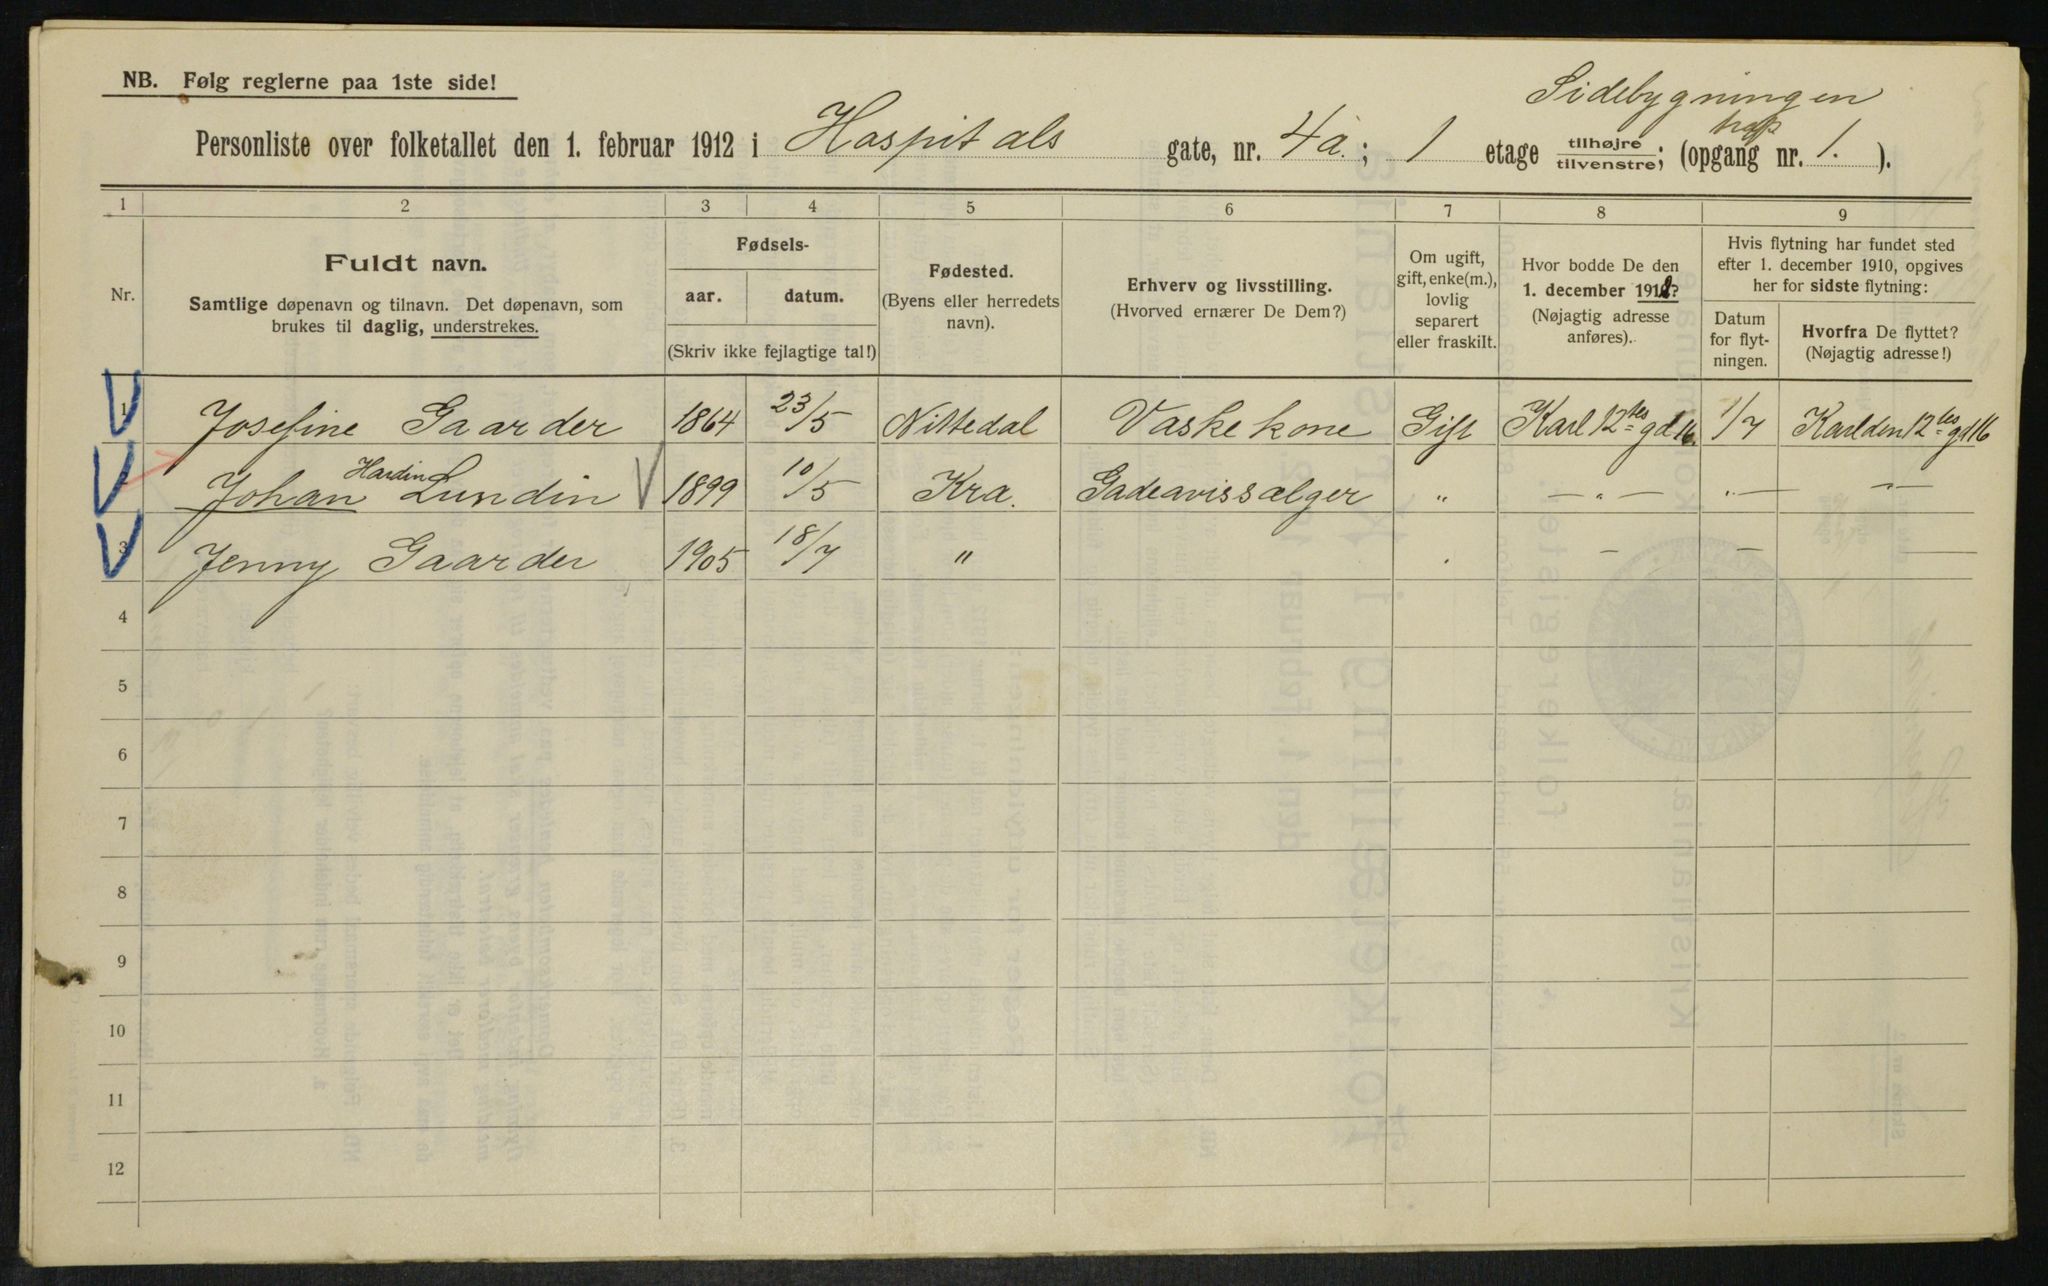 NB. Følg reglerne paa 1ste side!
Sidebygningen
Personliste over folketallet den 1. februar 1912 i Hospitals gate, nr. 4a; 1 etage tilhøjre tilvenstre; (opgang nr. 1.).
1 2 3 4 5 6 7 8 9
Nr.
Fuldt navn.
Samtlige døpenavn og tilnavn. Det døpenavn, som
brukes til daglig, understrekes.
Fødsels-
aar. datum.
(Skriv ikke fejlagtige tal!)
Fødested.
(Byens eller herredets
navn).
Erhverv og livsstilling.
(Hvorved ernærer De Dem?)
Om ugift,
gift, enke(m.),
lovlig
separert
eller fraskilt.
Hvor bodde De den
1. december 1911?
(Nøjagtig adresse
anføres).
Hvis flytning har fundet sted
efter 1. december 1910, opgives
her for sidste flytning:
Datum
for flyt-
ningen.
Hvorfra De flyttet?
(Nøjagtig adresse!)
1 Josefine Gaarder 1864 23/5 Nittedal Vaskekone Gift Karl 12tes gd 16. 1/7 Karl den 12tes gd 16
Hardin
2 Johan Lundin 1899 10/5 Kra. Gadeavissælger " — " — " — " —
3 Jenny Gaarder 1905 18/7 " — —
4
5
6
7
8
9
10
11
12